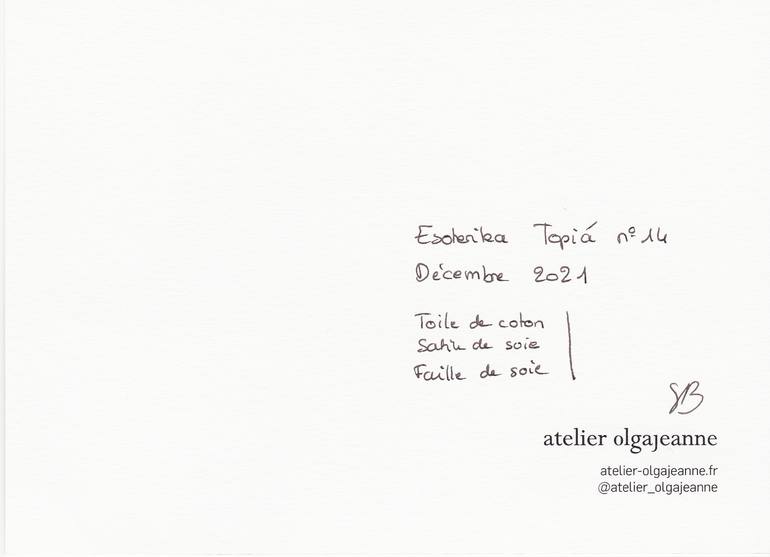 Esoterika Topiá nº 14
Décembre 2021
Toile de coton
Satin de soie
Faille de soie
SB
atelier olgajeanne
atelier-olgajeanne.fr
@atelier_olgajeanne